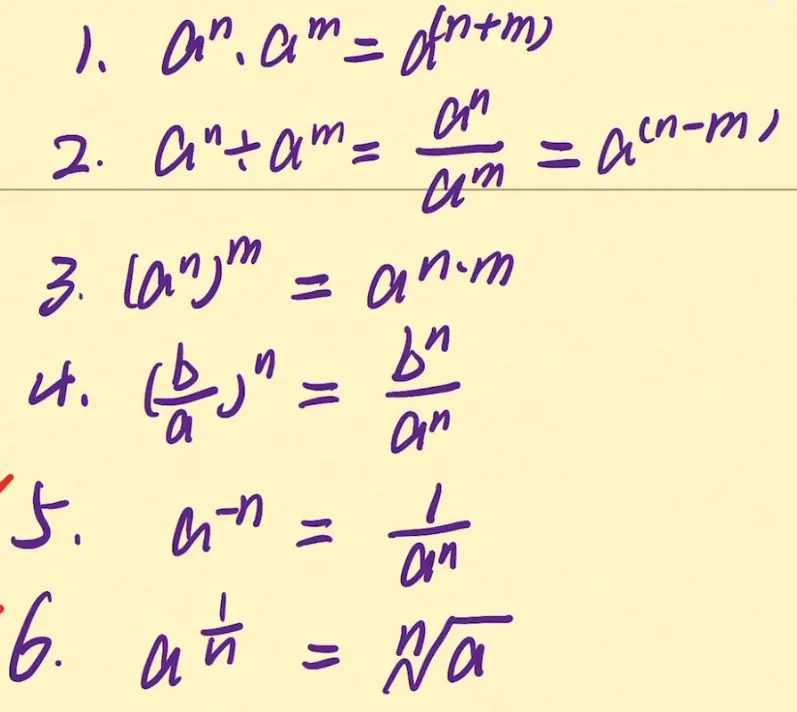 1. aⁿ · aᵐ = a⁽ⁿ⁺ᵐ⁾
2. aⁿ ÷ aᵐ = aⁿ/aᵐ = a⁽ⁿ⁻ᵐ⁾
3. (aⁿ)ᵐ = a^(n·m)
4. (b/a)ⁿ = bⁿ/aⁿ
5. a⁻ⁿ = 1/aⁿ
6. a^(1/n) = ⁿ√a